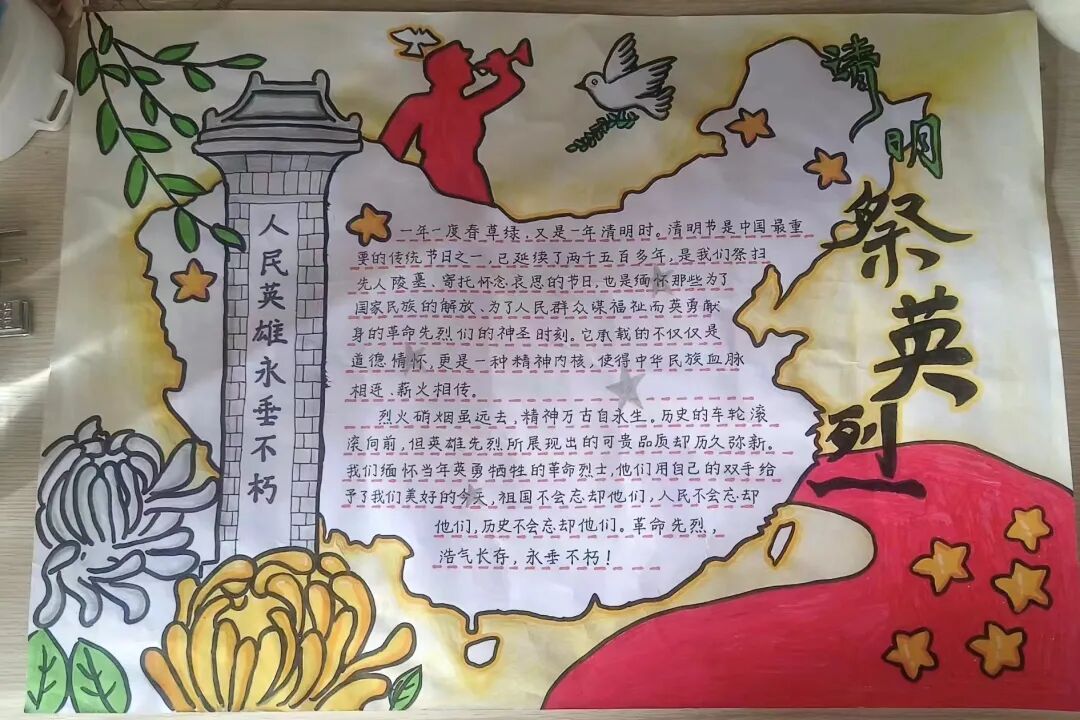 清明
祭英烈
人民英雄永垂不朽
一年一度春草绿，又是一年清明时。清明节是中国最重
要的传统节日之一，已延续了两千五百多年，是我们祭扫
先人陵墓、寄托怀念哀思的节日，也是缅怀那些为了
国家民族的解放、为了人民群众谋福祉而英勇献
身的革命先烈们的神圣时刻。它承载的不仅仅是
道德情怀，更是一种精神内核，使得中华民族血脉
相连、薪火相传。
烈火硝烟虽远去，精神万古自永生。历史的车轮滚
滚向前，但英雄先烈所展现出的可贵品质却历久弥新。
我们缅怀当年英勇牺牲的革命烈士，他们用自己的双手给
予了我们美好的今天，祖国不会忘却他们，人民不会忘却
他们，历史不会忘却他们。革命先烈，
浩气长存，永垂不朽！